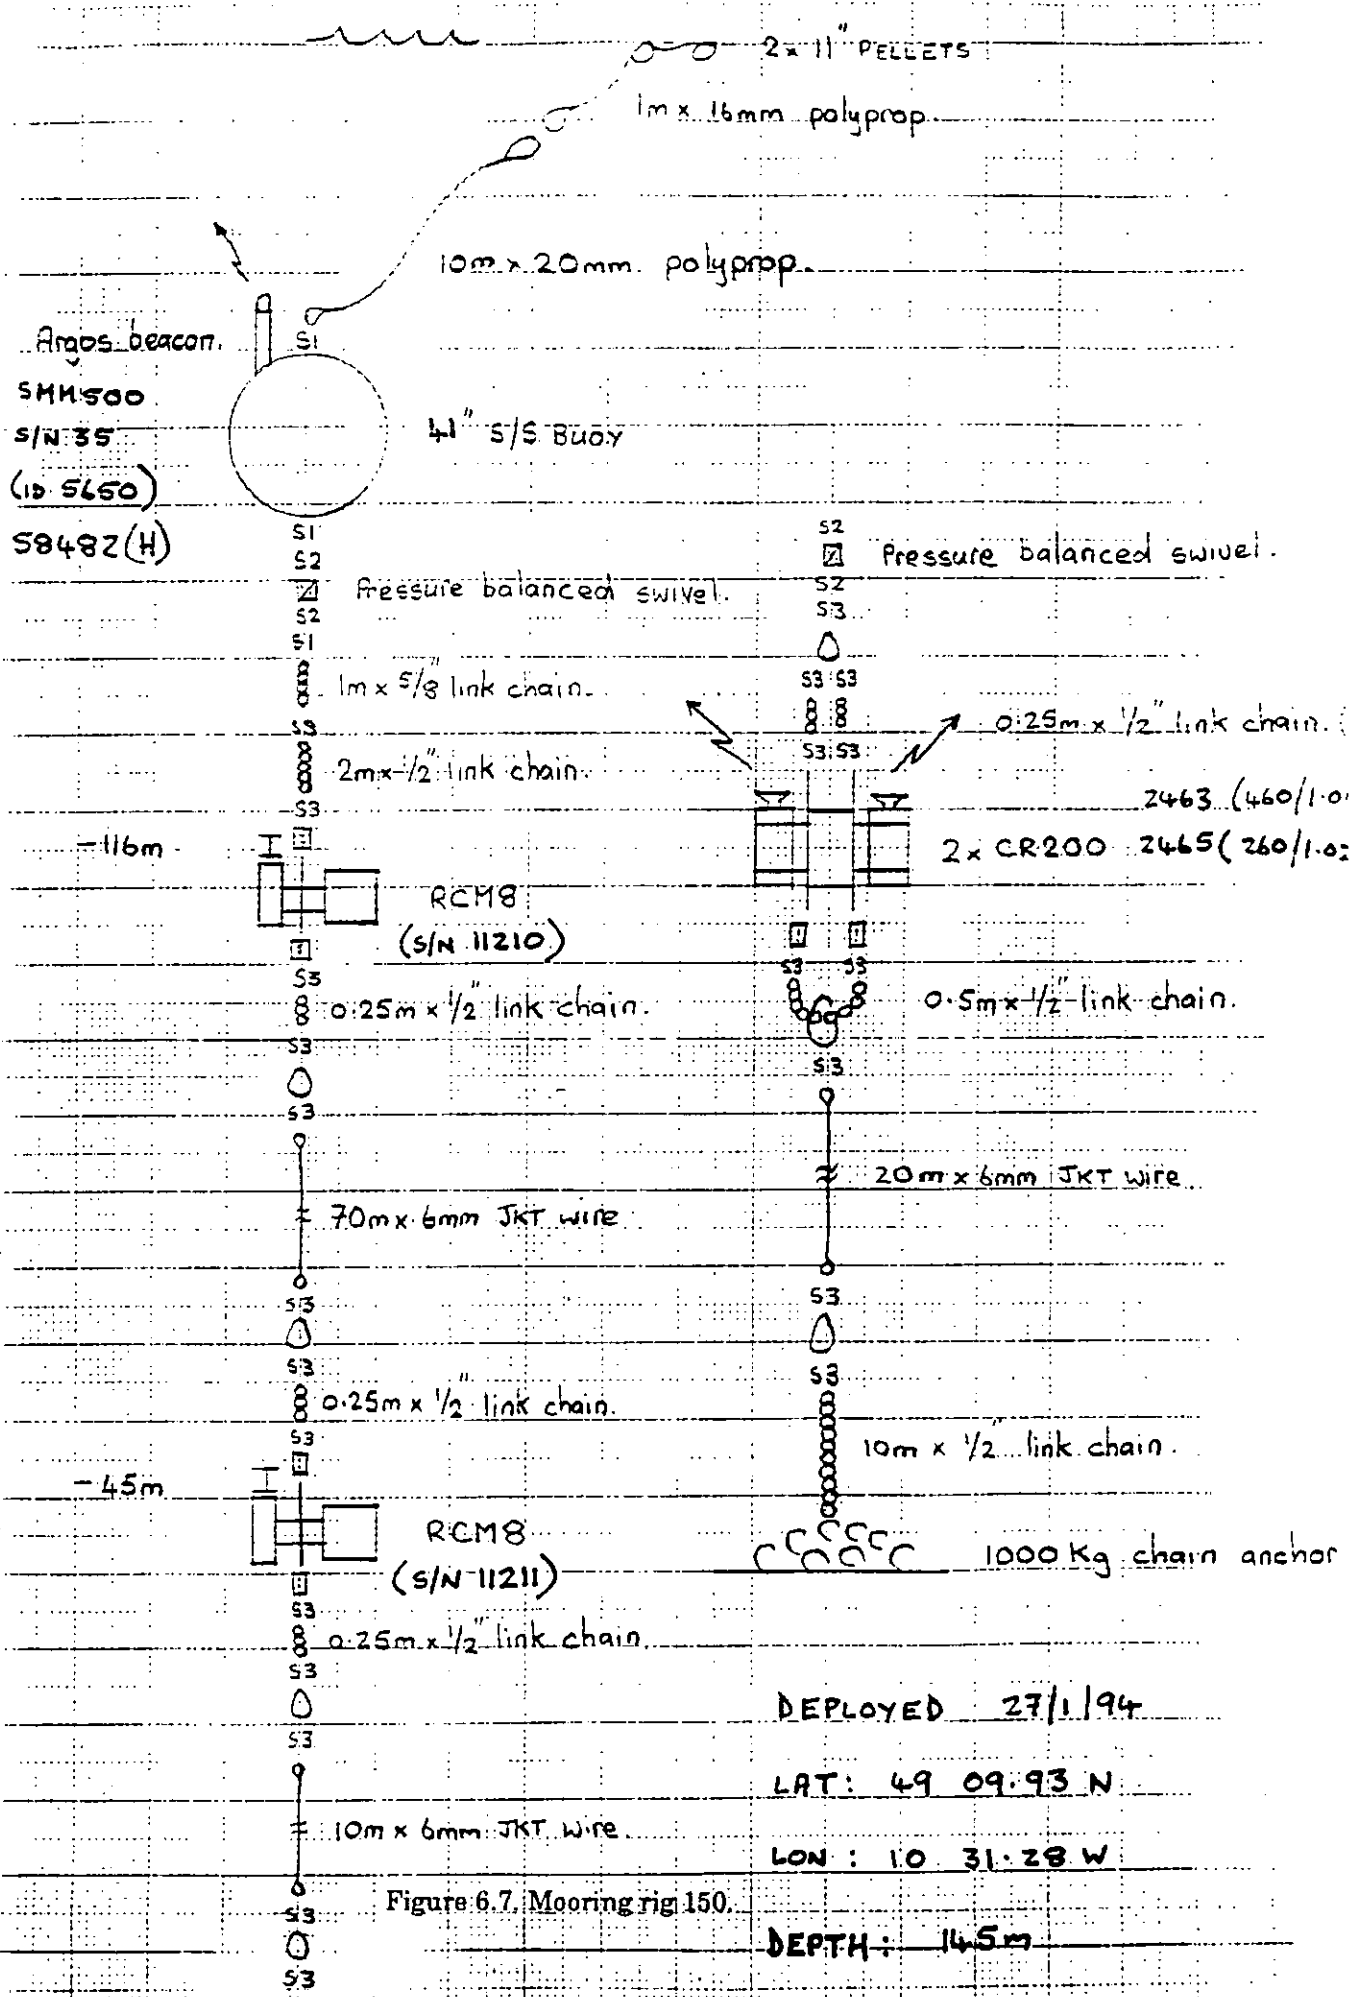 2 x 11" PELLETS
1m x 16mm polyprop.
10m x 20mm polyprop.
Argos beacon.
S1
SMM500
S/N 35
(ID 5650)
58482(H)
41" S/S BUOY
S1
S2
Pressure balanced swivel.
S2
S1
1m x 5/8" link chain.
S3
2m x 1/2" link chain.
S3
-116m
RCM8
(S/N 11210)
S3
0.25m x 1/2" link chain.
S3
S3
70m x 6mm JKT wire
S3
S3
0.25m x 1/2" link chain.
S3
-45m
RCM8
(S/N 11211)
S3
0.25m x 1/2" link chain.
S3
S3
10m x 6mm JKT wire.
S3
S3
S2
Pressure balanced swivel.
S2
S3
S3 S3
0.25m x 1/2" link chain.
S3 S3
2463 (460/1.0
2 x CR200 2465 (260/1.0
S3 S3
0.5m x 1/2" link chain.
S3
20m x 6mm JKT wire
S3
S3
10m x 1/2" link chain.
1000 Kg chain anchor
DEPLOYED 27/1/94
LAT: 49 09.93 N
LON: 10 31.28 W
DEPTH: 145m
Figure 6.7. Mooring rig 150.